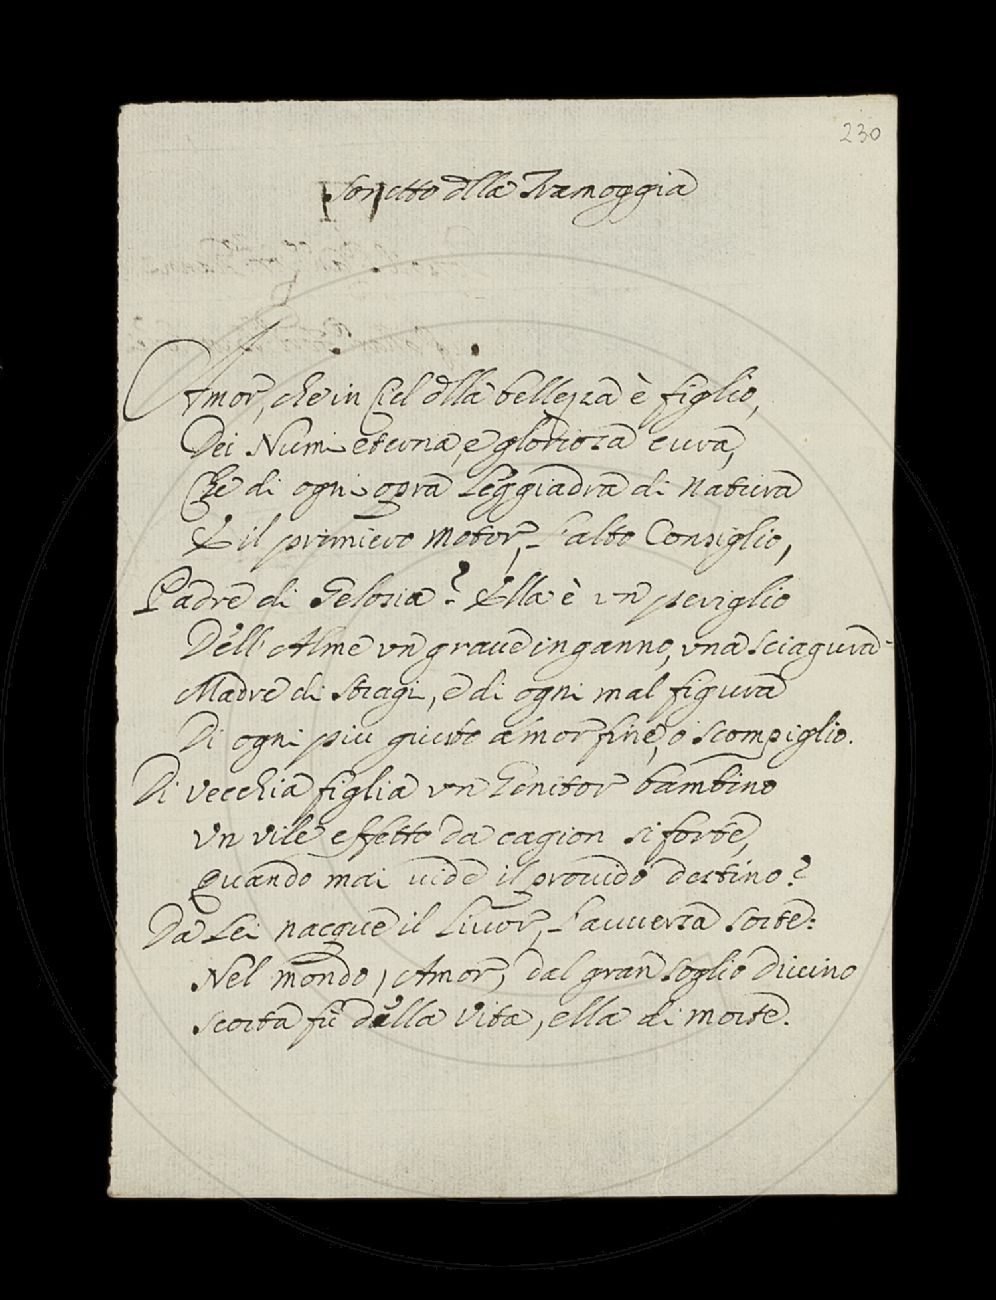 230
Sonetto dlla Tramoggia
Amor, che in Ciel dlla bellezza è figlio,
Dei Numi eterna, e gloriosa cura,
Che di ogni opra leggiadra di natura
È il primiero motor, l'alto Consiglio,
Padre di Gelosia? Ella è un periglio
Dell'Alme un grave inganno, una sciagura
Madre di stragi, e di ogni mal figura
Di ogni piu giusto amor fine, o scompiglio.
Di vecchia figlia un Genitor bambino
Un vile effetto da cagion si forte,
Quando mai uide il prouido destino?
Da Lei nacque il Liuor, l'auuersa sorte:
Nel mondo, Amor, dal gran soglio Diuino
Scorta fù della Vita, ella di morte.